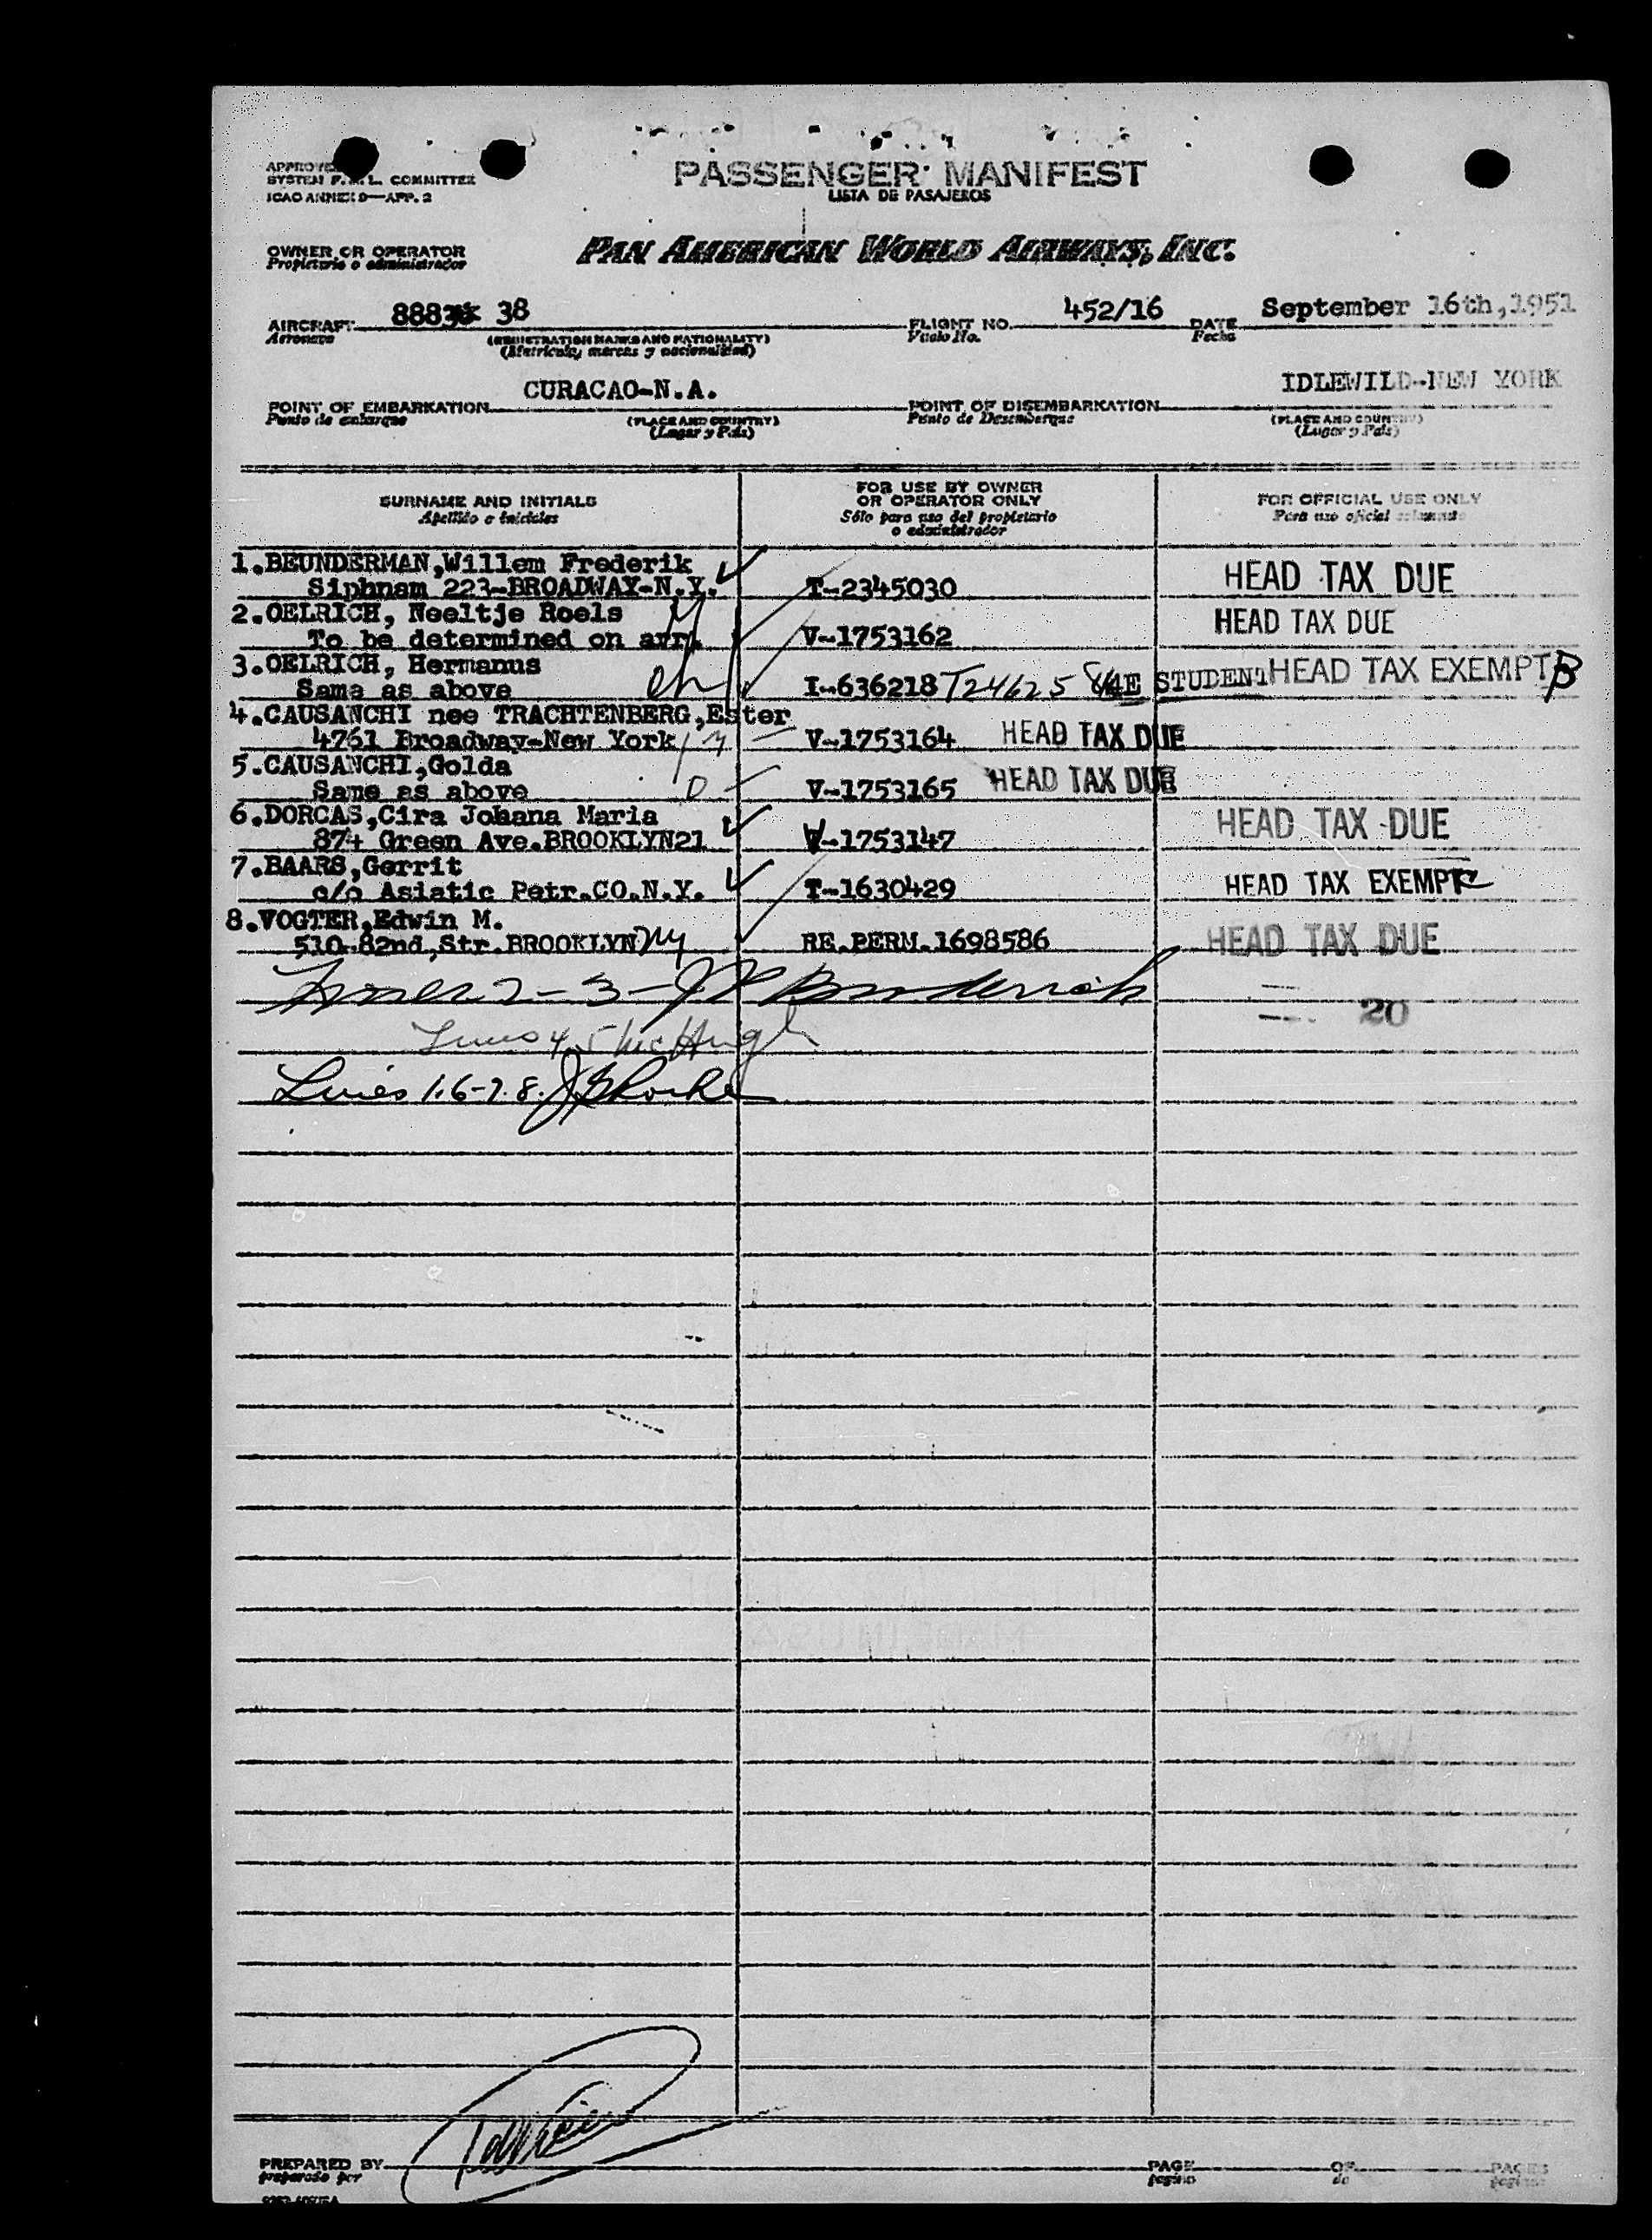 APPROVE
SYSTEM F.A.L. COMMITTEE
ICAO ANNEX 9—APP. 2
PASSENGER MANIFEST
LISTA DE PASAJEROS
OWNER OR OPERATOR
Propietario o administrador
PAN AMERICAN WORLD AIRWAYS, INC.
AIRCRAFT 8883 38
Aeronave
(REGISTRATION MARKS AND NATIONALITY)
(Matrícula, marcas y nacionalidad)
FLIGHT NO. 452/16
Vuelo No.
DATE September 16th,1951
Fecha
POINT OF EMBARKATION CURACAO-N.A.
Punto de embarque
(PLACE AND COUNTRY)
(Lugar y País)
POINT OF DISEMBARKATION IDLEWILD-NEW YORK
Punto de Desembarque
(PLACE AND COUNTRY)
(Lugar y País)
SURNAME AND INITIALS
Apellido e iniciales
FOR USE BY OWNER
OR OPERATOR ONLY
Sólo para uso del propietario
o administrador
FOR OFFICIAL USE ONLY
Para uso oficial solamente
1.BEUNDERMAN,Willem Frederik
Siphnam 223-BROADWAY-N.Y. T-2345030 HEAD TAX DUE
2.OELRICH, Neeltje Roels
To be determined on arr. V-1753162 HEAD TAX DUE
3.OELRICH, Hermanus
Same as above I-636218 T24625 4E STUDENT HEAD TAX EXEMPT B
4.CAUSANCHI nee TRACHTENBERG,Ester
4761 Broadway-New York V-1753164 HEAD TAX DUE
5.CAUSANCHI,Golda
Same as above V-1753165 HEAD TAX DUE
6.DORCAS,Cira Johana Maria
874 Green Ave.BROOKLYN21 V-1753147 HEAD TAX DUE
7.BAARS,Gerrit
c/o Asiatic Petr.CO.N.Y. T-1630429 HEAD TAX EXEMPT
8.VOGTER,Edwin M.
510-82nd,Str.BROOKLYN NY RE.PERM.1698586 HEAD TAX DUE
2-3- Broderick
20
Lines 4,5 McHugh
Lines 1.6-7.8.
PREPARED BY
preparado por
PAGE
pagina
OF
de
PAGES
paginas